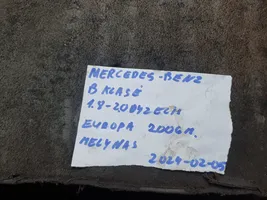 MERCEDES-BENZ
B KLASĖ
EUROPA 2006M.
MELYNAS
2024-02-05